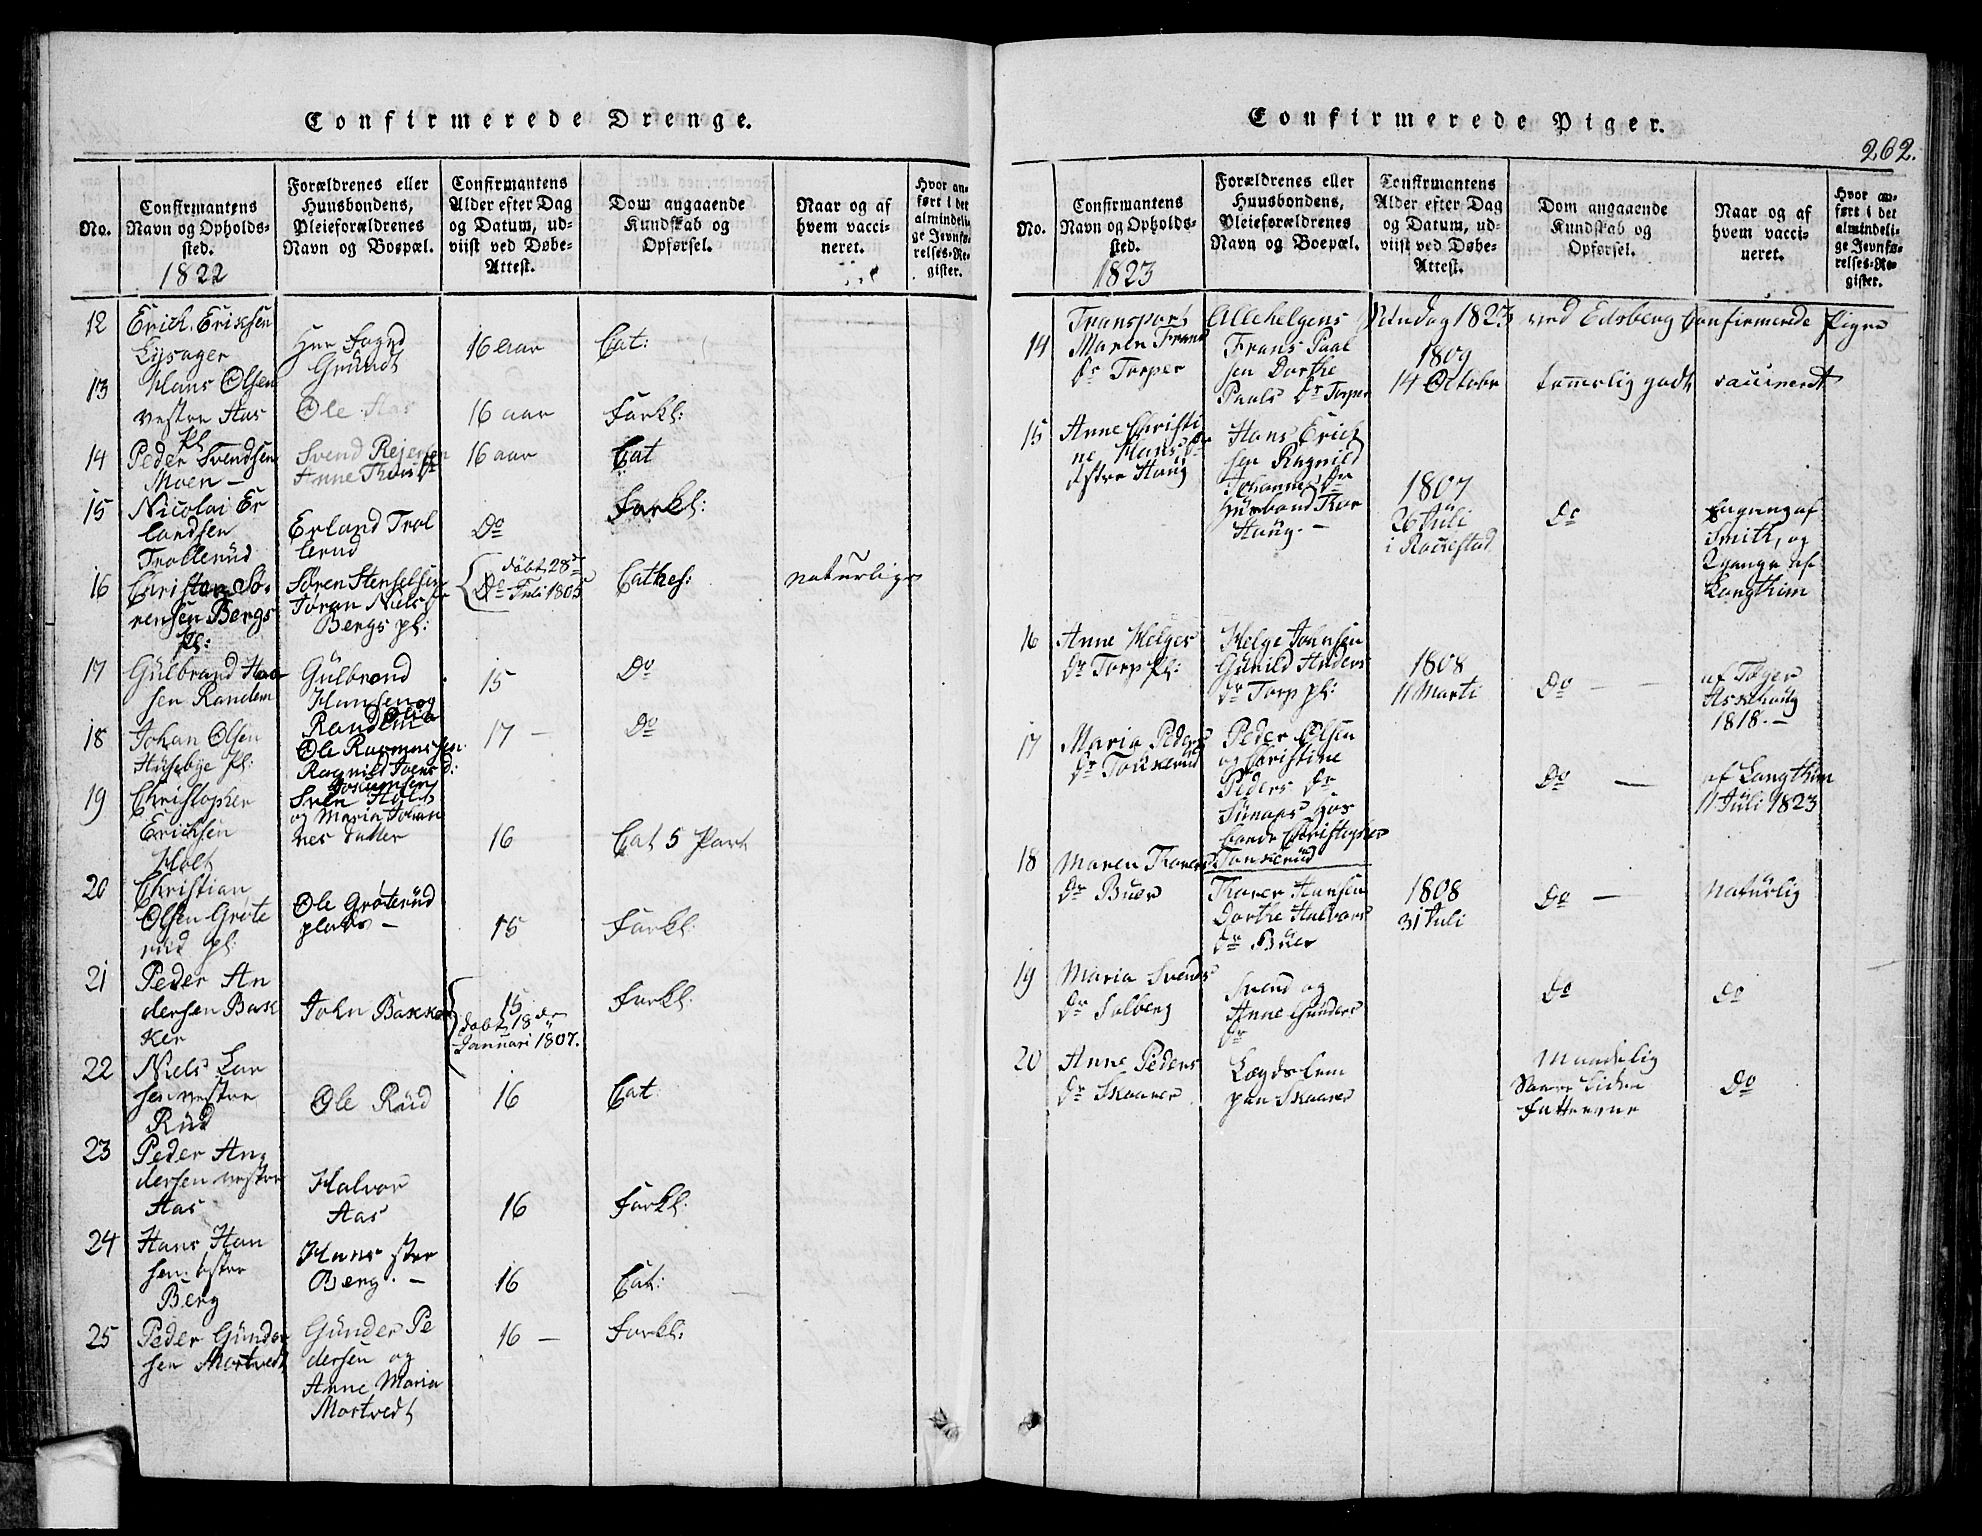 Confirmerede Drenge.
No.
Confirmantens
Navn og Opholds-
sted.
1822
Forældrenes eller
Huusbondens,
Pleieforældrenes
Navn og Boepæl.
Confirmantens
Alder efter Dag
og Datum, ud-
viist ved Døbe-
Attest.
Dom angaaende
Kundskab og
Opførsel.
Naar og af
hvem vacci-
neret.
Hvor an-
ført i det
almindeli-
ge Jevnfø-
relses-Re-
gister.
12
Erich Erichsen
Lysager
Hans Foged
Gründt
16 aar
Cat:
13
Hans Olsen
vestre Aas
pl
Ole Aas
16 aar
Forkl:
14
Peder Svendsen
Moen –
Svend Rejersen
Anne
16 aar
Cat
15
Nicolai Er
landsen
Trollerud
Erland Trol
lerud
Do
Forkl:
16
Christen Sö-
rensen Bergs
pl:
Sören Stenselsen
Jöran Niels Dr
Bergs pl:
Do
döbt 28de
Juli 1805
Cathes:
naturlige
17
Gülbrand Han
sen Randem
Gülbrand
Hansen og
Randem
15
Do
18
Johan Olsen
Huseby pl:
Ole Rasmussen
Ragnild Joens d:
17 –
Do
19
Christopher
Erichsen
Holt
og Maria Johan
nes Datter
16
Cat 5 Part
20
Christian
Olsen Gröte
rüd pl:
Ole Gröterüd
plads –
15
Forkl:
21
Peder An
dersen Bak
ker
John Bakker
15
döbt 18de
Januari 1807.
Forkl:
22
Niels Lar
sen vestre
Rüd
Ole Rüd
16
Cat:
23
Peder An
dersen vestre
Aas
Halvor
Aas
16
Forkl:
24
Hans Han
sen östre
Berg
Hans östre
Berg. –
16
Cat:
25
Peder Günder
sen Mortvedt
Günder Pe
dersen og
Anne Maria
Mortvedt
16 –
Forkl:
Confirmerede Piger.
262.
No.
Confirmantens
Navn og Opholds-
sted.
1823
Forældrenes eller
Huusbondens,
Pleieforældrenes
Navn og Boepæl.
Confirmantens
Alder efter Dag
og Datum, ud-
viist ved Døbe-
Attest.
Dom angaaende
Kundskab og
Opførsel.
Naar og af
hvem vacci-
neret.
Hvor an-
ført i det
almindeli-
ge Jevnfø-
relses-Re-
gister.
Transport Allehelgens Söndag 1823 ved Edsberg Confirmerede Piger
14
Maren Frans
Dr Torper
Frans Paal
sen Dorthe
Paals Dr Torper
1809
14 Octobr
temmelig godt
vaccineret
15
Anne Christi
ne Hans Dr
östre Haug
Hans Erich
sen Ragnild
Johannes Dr
Huusbond Thor
Haug. –
1807
26 Juli
i Rackestad
Do
af
Smith, og
af
Langthim
16
Anne Helges
Dr Torp pl:
Helge Johnsen
Gunild Anders
Dr Torp pl:
1808
11 Marti
Do –
af Töger
Askehoug
1818. –
17
Maria Peders
Dr Toskerud
Peder Olsen
og Christine
Peders Dr
hos
Christopher
Toskerüd
Do –
af Langthim
11 Juli 1823
18
Maren Thorers
Dr Buer
Thorer Hansen
Dorthe Halvors
Dr Büer
1808
31 Juli
Do –
Naturlig
19
Maria Svends
Dr Solberg
Svend og
Anne Günders
Dr
Do
Do
20
Anne Peders
Dr Skaarer
Lægdslem
paa Skaarer
Maadelig
Do